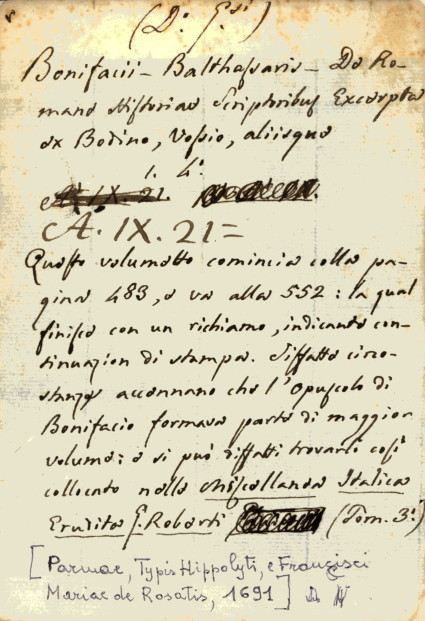 (D.° G.si)
Bonifacii - Balthassaris - De Ro-
manae Historiae Scriptoribus Excerpta
ex Bodino, Vossio, aliisque
1. 4.°
A. IX. 21.
A. IX. 21 =
Questo volumetto comincia colla pa-
gina 483, e va alla 552: la qual
finisce con un richiamo, indicante con-
tinuazion di stampa. Siffatte circo-
stanze accennano che l'Opuscolo di
Bonifacio formava parte di maggior
volume: e si può diffatti trovarlo così
collocato nella Miscellanea Italica
Erudita G. Roberti (Tom. 3.°)
[Parmae, Typis Hippolyti, e Francisci
Mariae de Rosatis, 1691]